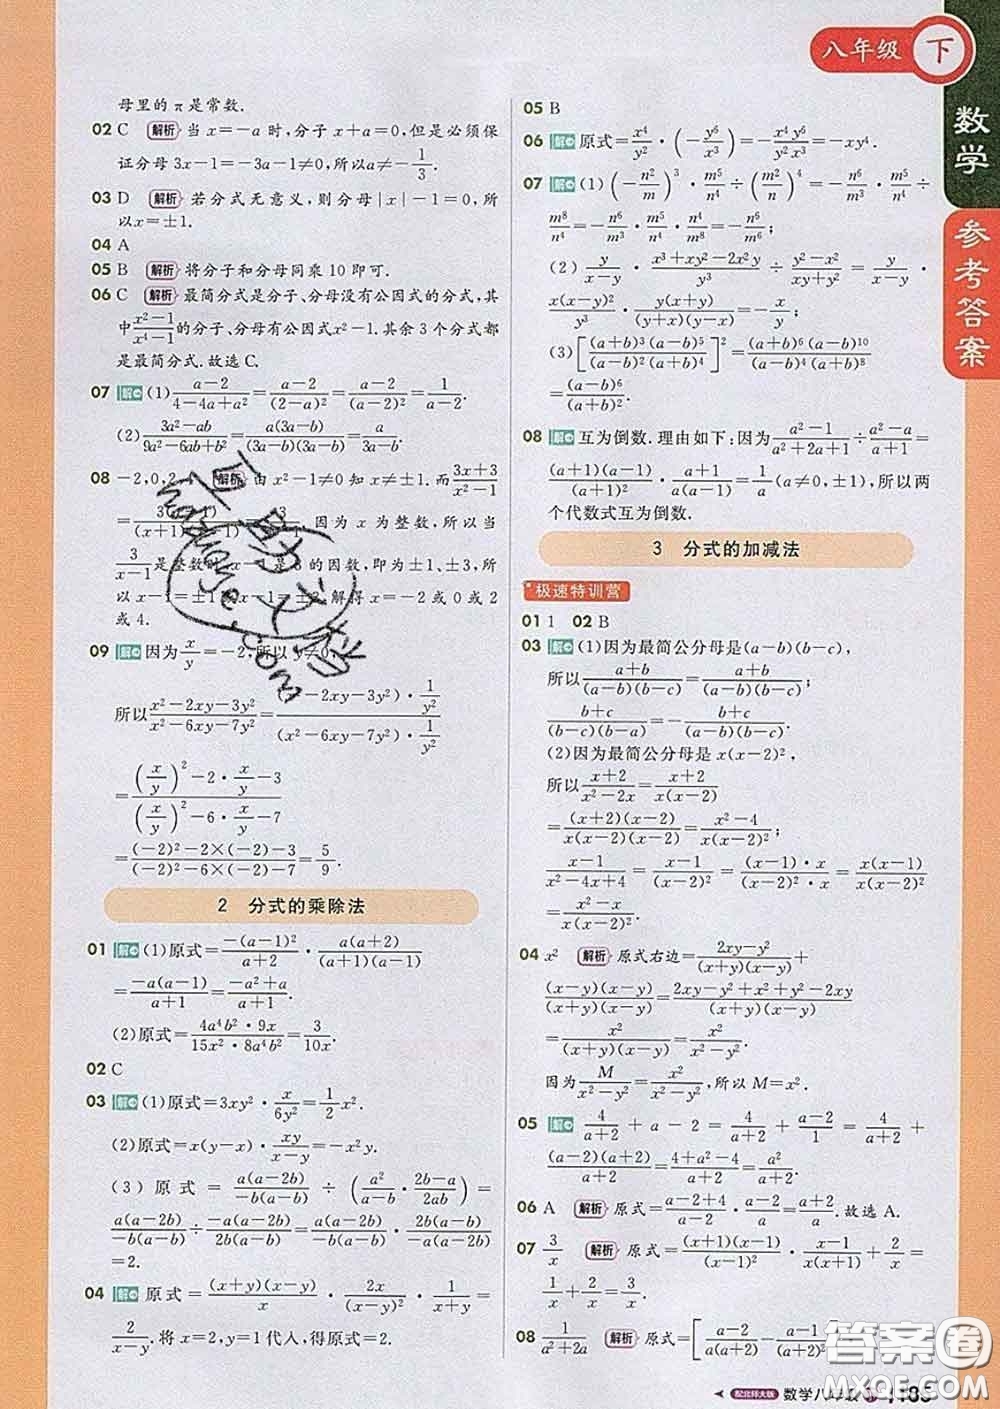 八年级 下
数学
参考答案
母里的π是常数.
02 C 解析 当x=-a时,分子x+a=0,但是必须保
证分母3x-1=-3a-1≠0,所以a≠-1/3.
03 D 解析 若分式无意义,则分母|x|-1=0,所
以x=±1.
04 A
05 B 解析 将分子和分母同乘10即可.
06 C 解析 最简分式是分子、分母没有公因式的分式,其
中(x²-1)/(x⁴-1)的分子、分母有公因式x²-1.其余3个分式都
是最简分式.故选C.
07 解 (1)(a-2)/(4-4a+a²)=(a-2)/(2-a)²=(a-2)/(a-2)²=1/(a-2).
(2)(3a²-ab)/(9a²-6ab+b²)=a(3a-b)/((3a-b)(3a-b))=a/(3a-b).
08 -2,0,2, 解析 由x²-1≠0知x≠±1.而(3x+3)/(x²-1)
因为x为整数,所以当
3/(x-1)是整数时 的因数,即为±1、±3.所
以x-1=±1 x-1=±3.解得x=-2或0或2
或4.
09 解 因为x/y=-2,所以y≠0,
所以(x²-2xy-3y²)/(x²-6xy-7y²)=((x²-2xy-3y²)·1/y²)/((x²-6xy-7y²)·1/y²)
=((x/y)²-2·x/y-3)/((x/y)²-6·x/y-7)
=((-2)²-2×(-2)-3)/((-2)²-6×(-2)-7)=5/9.
2 分式的乘除法
01 解 (1)原式=-(a-1)²/(a+2)·a(a+2)/((a+1)(a-1))
=-a(a-1)/(a+1)=(-a²+a)/(a+1).
(2)原式=(4a⁴b²·9x)/(15x²·8a⁴b²)=3/(10x).
02 C
03 解 (1)原式=3xy²·x/(6y²)=1/2 x².
(2)原式=x(y-x)·xy/(x-y)=-x²y.
(3)原式=a(a-2b)/(-b(a-b))÷(a²/(a-b)·(2b-a)/(2ab))=
a(a-2b)/(-b(a-b))÷(-a(a-2b))/(2b(a-b))=a(a-2b)/(-b(a-b))·2b(a-b)/(-a(a-2b))
=2.
04 解 原式=(x+y)(x-y)/x·2x/(x-y)²·1/(x+y)=
2/(x-y).将x=2,y=1代入,得原式=2.
05 B
06 解 原式=x⁴/y²·(-y⁶/x³)=-x⁴y⁶/(y²x³)=-xy⁴.
07 解 (1)(-n²/m)³·m⁵/n⁵÷(m²/n)⁴=-n⁶/m³·m⁵/n⁵÷
m⁸/n⁴=-n⁶/m³·m⁵/n⁵·n⁴/m⁸=-n⁵/m⁶;
(2)y/(x-y)·(x³+xy²-2x²y)/y³÷(y²-x²)/(xy+y²)=y/(x-y)·
x(x-y)²/y³·y(x+y)/((y+x)(y-x))=-x/y;
(3)[(a+b)³(a-b)⁵/(a+b)⁷(a-b)²]²=(a+b)⁶(a-b)¹⁰/((a+b)¹⁴(a-b)⁴)
=(a-b)⁶/(a+b)⁸.
08 解 互为倒数.理由如下:因为(a²-1)/(a²+2a+1)÷(a²-a)/(a+1)=
(a+1)(a-1)/(a+1)²·(a+1)/(a(a-1))=1/a(a≠0,±1),所以两
个代数式互为倒数.
3 分式的加减法
极速特训营
01 1 02 B
03 解 (1)因为最简公分母是(a-b)(b-c),
所以(a+b)/((a-b)(b-c))=(a+b)/((a-b)(b-c));
(b+c)/((b-c)(a-b))=(b+c)/((a-b)(b-c)).
(2)因为最简公分母是x(x-2)²,
所以(x+2)/(x²-2x)=(x+2)/(x(x-2))
=(x+2)(x-2)/(x(x-2)(x-2))=(x²-4)/(x(x-2)²);
(x-1)/(x²-4x+4)=(x-1)/(x-2)²=((x-1)·x)/((x-2)²·x)=x(x-1)/(x(x-2)²)
=(x²-x)/(x(x-2)²).
04 x² 解析 原式右边=(2xy-y²)/((x+y)(x-y))+
(x-y)(x-y)/((x+y)(x-y))=(2xy-y²+x²+y²-2xy)/((x+y)(x-y))
=x²/((x+y)(x-y))=x²/(x²-y²).
因为M/(x²-y²)=x²/(x²-y²),所以M=x².
05 解 4/(a+2)+a-2=4/(a+2)+(a-2)/1=4/(a+2)+
(a-2)(a+2)/(a+2)=(4+a²-4)/(a+2)=a²/(a+2).
06 A 解析 原式=(a-2+4)/(a-2)·(a-2)/a=(a+2)/a.故选A.
07 3/x 解析 原式=(x+1)(x-1)/(x-1)²·(x-1)/(x(x+1))+2/x=
1/x+2/x=3/x.
08 1/(a²+2a) 解析 原式=[(a-2)/(a(a+2))-(a-1)/
配北师大版 数学八年级 下 185
答案圈
MXQE.COM